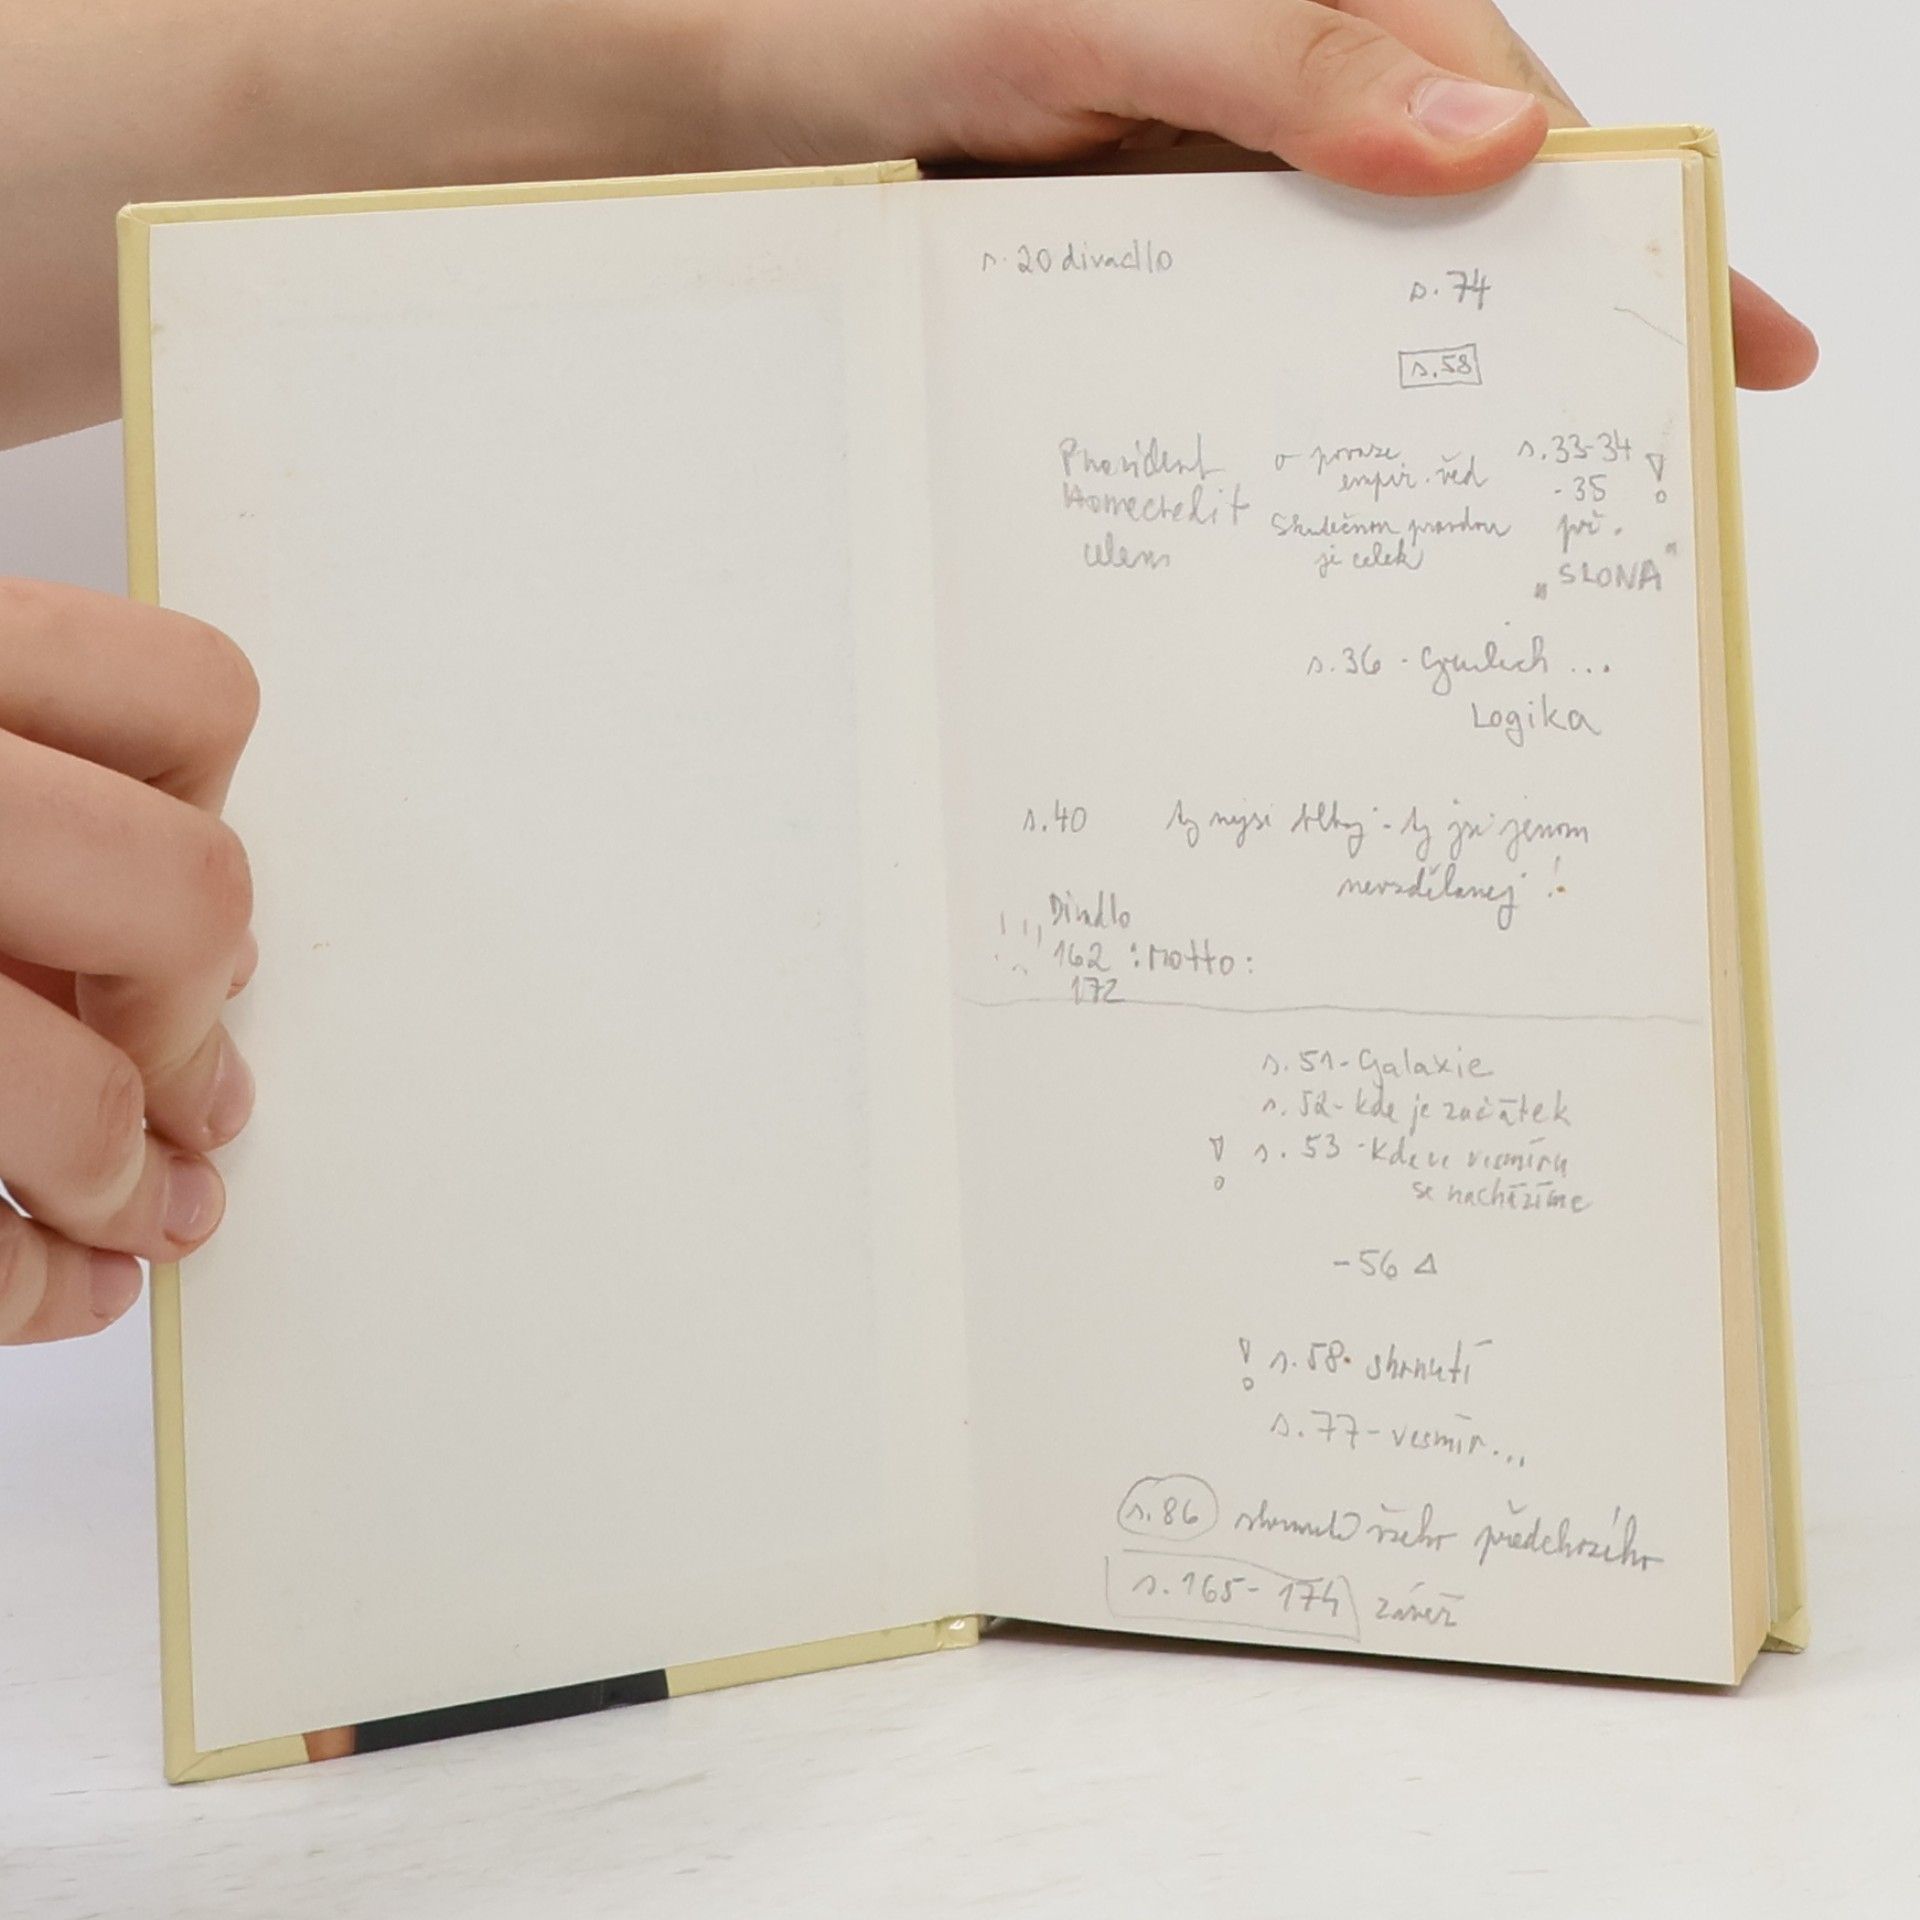 s. 20 divadlo
s. 74
s. 58
Provident
Homecredit
o povaze
empir. věd
Skutečnou pravdou
je celek
s. 33-34
- 35
př.
„SLONA"
s. 36 -
Logika
s. 40 ty nejsi blbej - ty jsi jenom
nevzdělanej!
Divadlo
162 : Motto:
172
s. 51 - Galaxie
s. 52 - kde je začátek
! s. 53 - Kde ve vesmíru
se nacházíme
- 56 Δ
! s. 58. shrnutí
s. 77 - vesmír...
s. 86 shrnutí všeho předchozího
s. 165 - 174 závěr